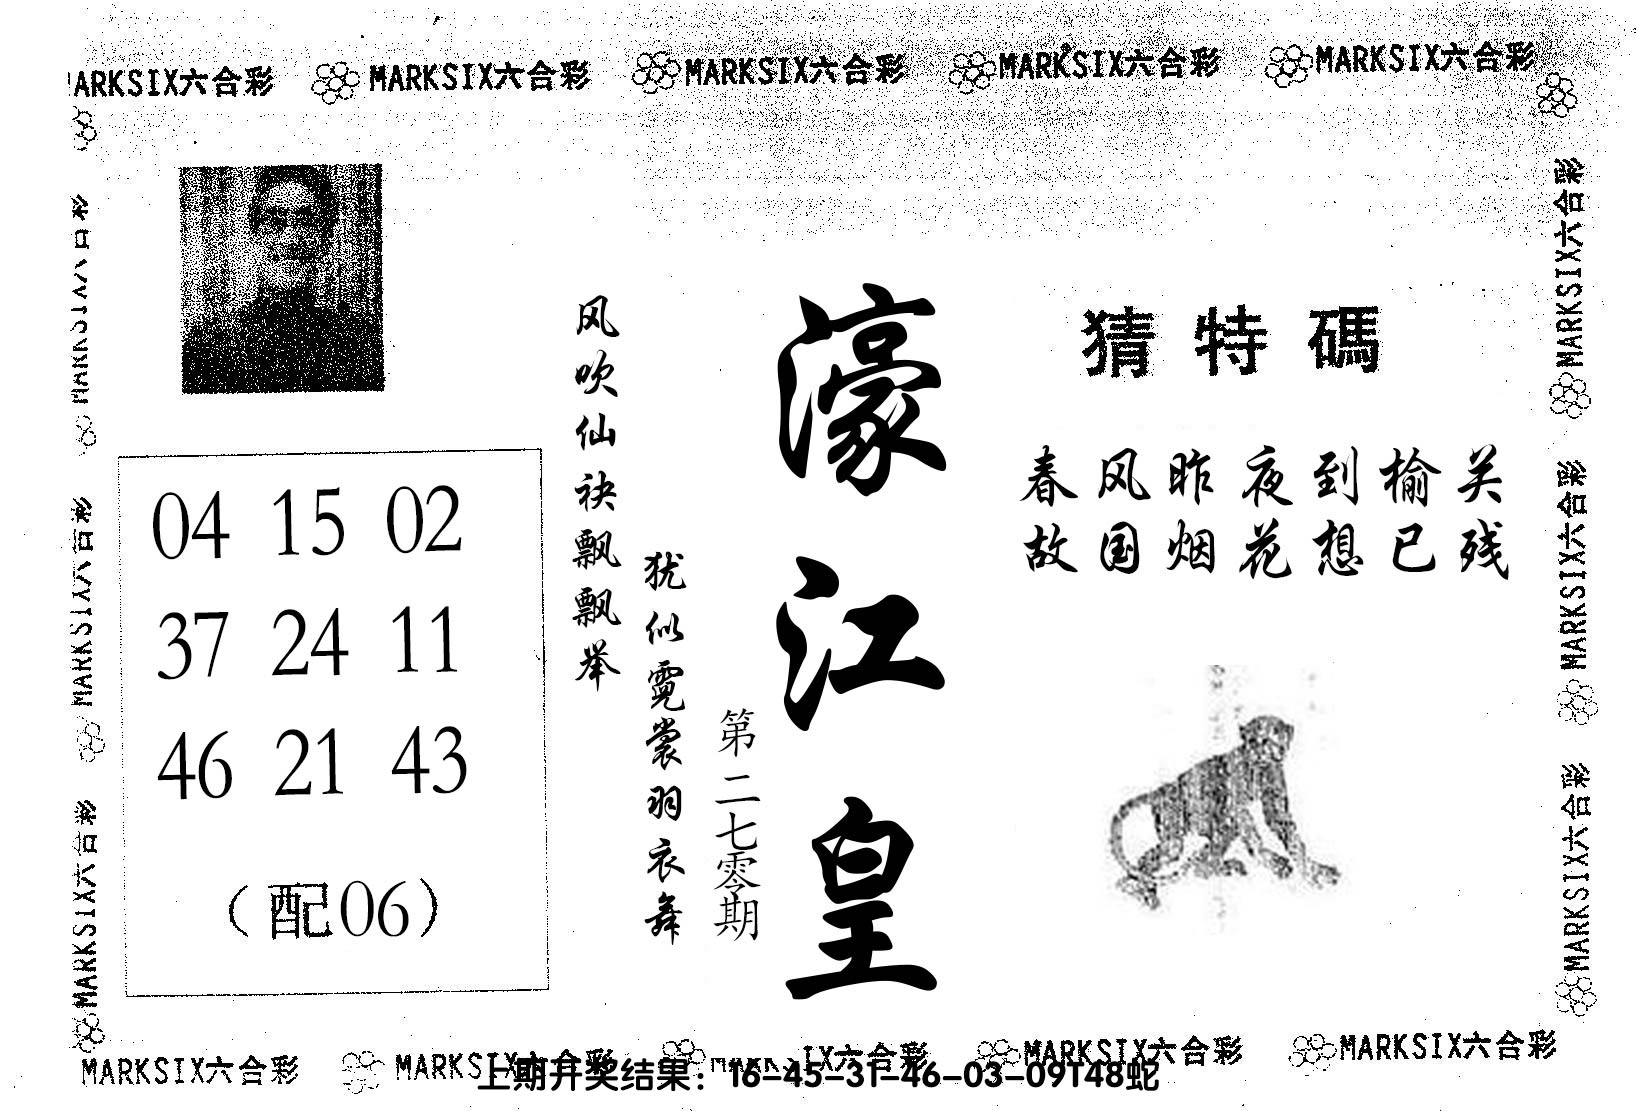 MARKSIX六合彩 MARKSIX六合彩 MARKSIX六合彩 MARKSIX六合彩 MARKSIX六合彩
MARKSIX六合彩
MARKSIX六合彩
MARKSIX六合彩
04 15 02
37 24 11
46 21 43
(配06)
风吹仙袂飘飘举
犹似霓裳羽衣舞
第二七零期
濠江皇
猜特碼
春风昨夜到榆关
故国烟花想已残
MARKSIX六合彩
MARKSIX六合彩
MARKSIX六合彩
MARKSIX六合彩 MARKSIX六合彩 MARKSIX六合彩 MARKSIX六合彩 MARKSIX六合彩
上期开奖结果：16-45-31-46-03-09T48蛇